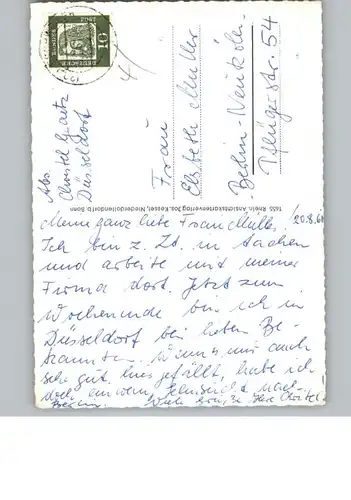 Abs.
Christel Goartz
Düsseldorf
DEUTSCHE
10
Frau
Elsbeth Müller
Berlin-Neukölln
Pflügerstr. 54
1455 Rhein. Ansichtskartenverlag Jos. Kessel, Niederdollendorf b. Bonn
20.8.61
Meine ganz liebe Frau Müller,
Ich bin z. Zt. in Aachen
und arbeite mit meiner
Firma dort. Jetzt zum
Wochenende bin ich in
Düsseldorf bei lieben Be-
kannten. Wenn's mir auch
sehr gut hier gefällt, habe ich
doch einwenig Sehnsucht nach
Berlin. Viele Grüße Ihre Christel